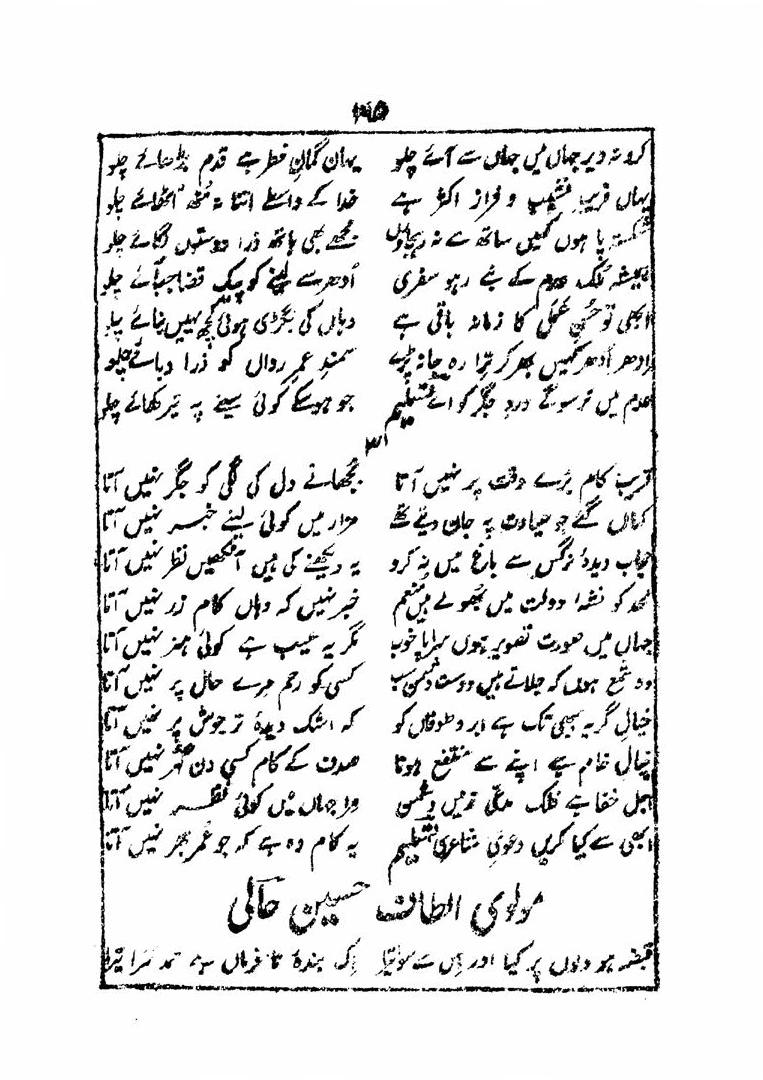 کرو نہ دیر جہاں میں جہاں سے آئے چلو یہاں گمانِ خطر ہے قدم بڑھائے چلو
یہاں فریبِ نشیب و فراز اکثر ہے خدا کے واسطے اتنا نہ منہ اٹھائے چلو
شکستہ پا ہوں کہیں ساتھ سے نہ رہجاؤں مجھے بھی ہاتھ ذرا دوستوں لگائے چلو
ہمیشہ ملک عدم کے بنے رہو سفری اُدھر سے لینے کو پیکِ قضا جب آئے چلو
ابھی تو حسنِ عمل کا زمانہ باقی ہے وہاں کی بگڑی ہوئی کچھ یہیں بنائے چلو
اِدھر اُدھر کہیں بھر کر ترارہ جا نہ پڑے سمندِ عمرِ رواں کو ذرا دبائے چلو
عدم میں ترسو گے دردِ جگر کو اے تسلیم جو ہو سکے کوئی سینے پہ تیر کھائے چلو
قریب کام بڑے وقت پر نہیں آتا بجھانے دل کی لگی کو جگر نہیں آتا
کہاں گئے جو عیادت پہ جان دیتے تھے مزار میں کوئی لینے خبر نہیں آتا
حجاب دیدۂ نرگس سے باغ میں نہ کرو یہ دیکھنے کی ہیں آنکھیں نظر نہیں آتا
لحد کو نشہ دولت میں بھولے ہیں منعم خبر نہیں کہ وہاں کام زر نہیں آتا
جہاں میں صورت تصویر ہوں سراپا خوب مگر یہ عیب ہے کوئی ہنر نہیں آتا
وہ شمع ہوں کہ جلاتے ہیں دوست دشمن سب کسی کو رحم مرے حال پر نہیں آتا
خیالِ گریہ ابھی تک ہے ابر و طوفاں کو کہ اشک دیدۂ تر جوش پر نہیں آتا
خیالِ خام ہے اپنے سے منتفع ہونا صدف کے کام کسی دن گہر نہیں آتا
اجل خفا ہے فلک مدعی زمیں دشمن مرا جہاں میں کوئی نظر نہیں آتا
ابھی سے کیا کریں دعویِ شاعری تسلیم یہ کام وہ ہے کہ جو عمر بھر نہیں آتا
مولوی الطاف حسین حالی
قبضہ ہو دلوں پر کیا اور اس سے سوا تیرا اک بندۂ نافرماں ہے حمد سرا تیرا